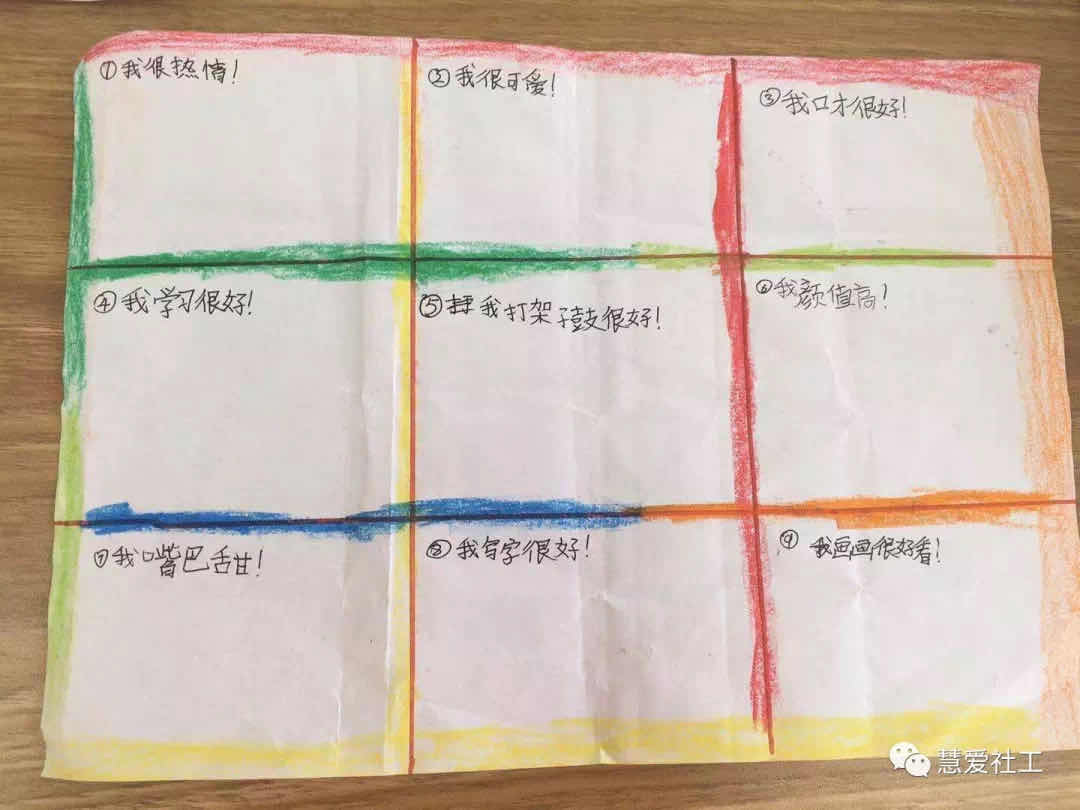 ①我很热情!
②我很可爱!
③我口才很好!
④我学习很好!
⑤我打架子鼓很好!
⑥我颜值高!
⑦我嘴巴甜!
⑧我写字很好!
⑨我画画很好看!
慧爱社工